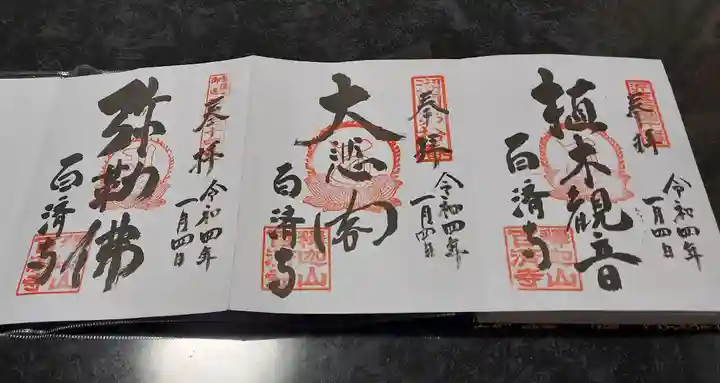 奉拝
令和四年
一月四日
植木観音
百済寺
釋迦山
百済寺
奉拝
令和四年
一月四日
大悲閣
百済寺
釋迦山
百済寺
奉拝
令和四年
一月四日
弥勒佛
百済寺